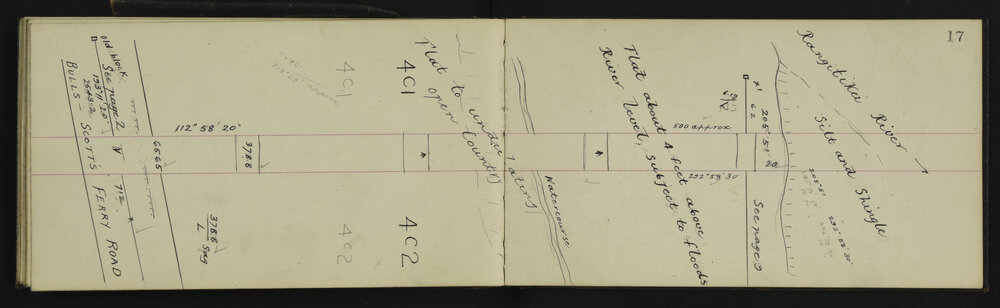 17
Rangitikei River
Silt and Shingle
205° 51'
292° 58' 30"
X1
62
205° 51' 20
See page 3
500 approx
292° 58' 30
Flat about 4 feet above
River level, subject to floods
Watercourse
Flat to undulating
open Country
4C1
4C2
4C1
4C2
112° 58' 20"
6565
3788
3788
L
Old block
See page 2
193° 11' 20"
2568.2
BULLS - SCOTT'S FERRY ROAD